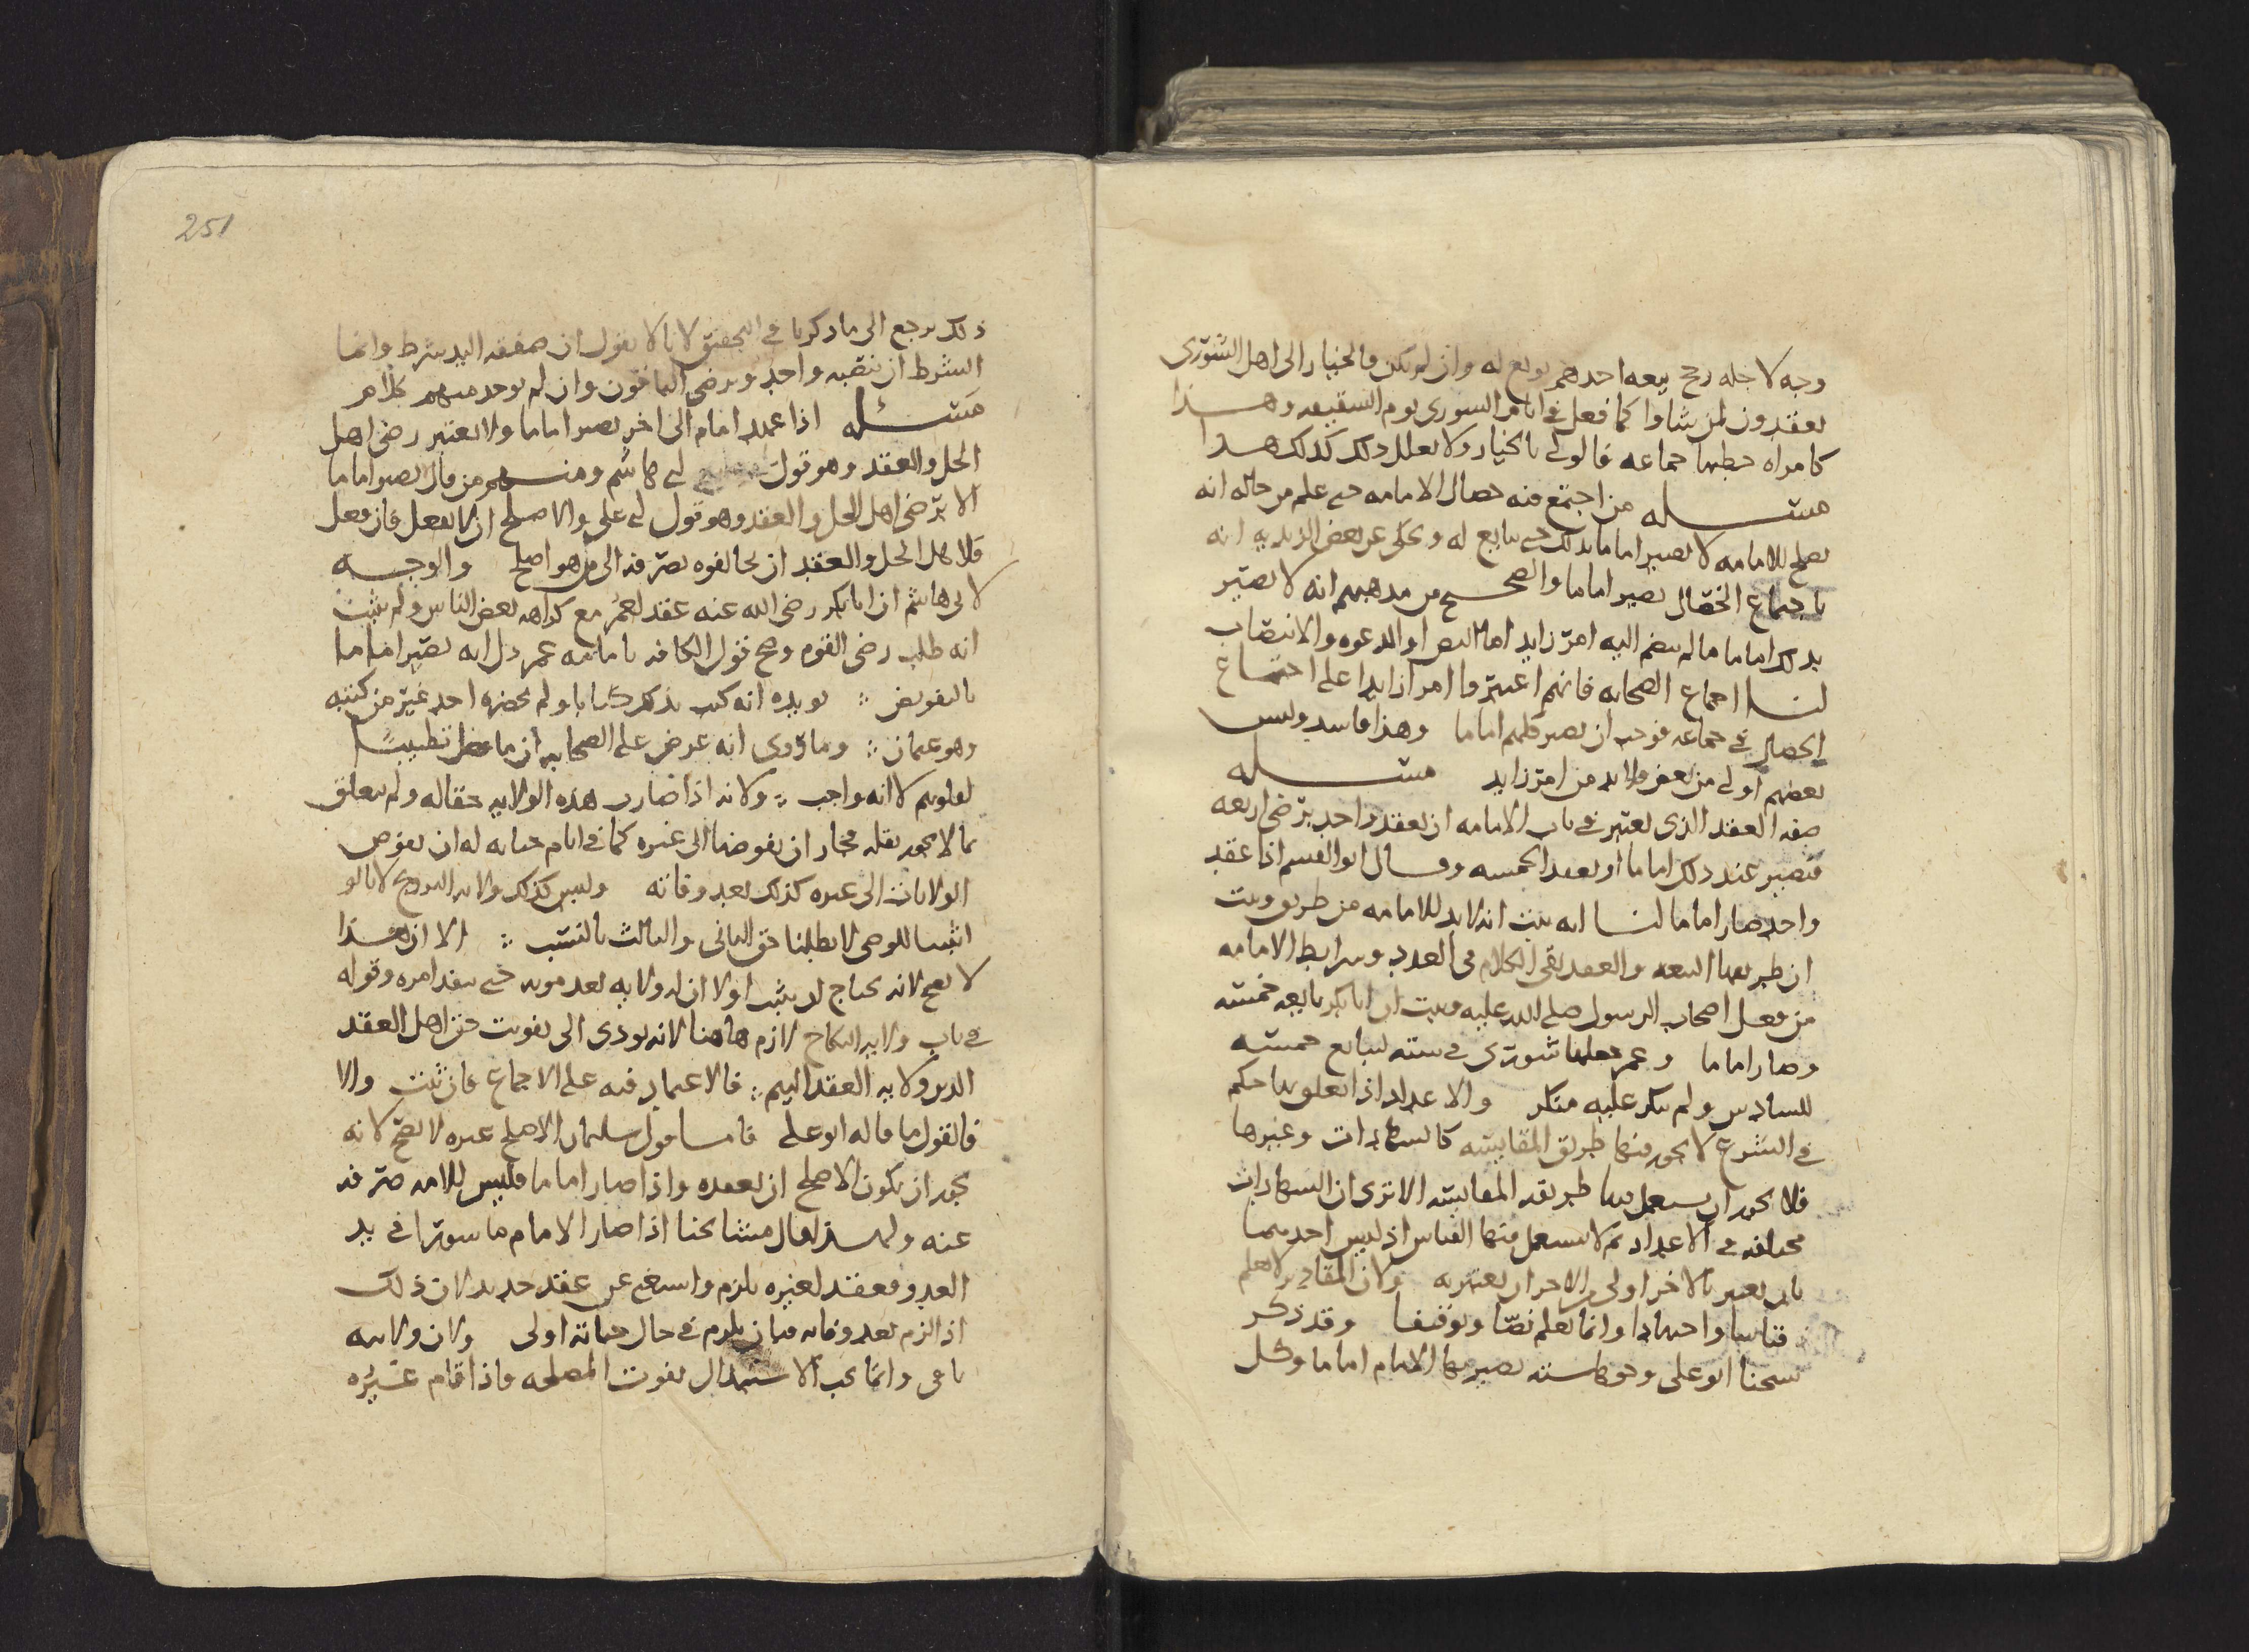 وجه لاجله رجح بيعه احدهم بويع له وان لم يكن فالخيار الى اهل الشورى
يعقدون لمن شاوا كما فعل في ايام الشورى يوم السقيفه وهذا
كامراه خطبها جماعه فالولي بالخيار ولا يعلل ذلك كذلك هذا
مسئله من اجتمع فيه خصال الامامه حتى علم من حاله انه
يصلح للامامه لا يصير اماما بذلك حتى يبايع له وحكى عن بعض الزيديه انه
باجتماع الخصال يصير اماما والصحيح من مذهبهم انه لا يصير
بذلك اماما ما لم ينضم اليه امر زايد اما النص او الدعوه والانتصاب
لنا اجماع الصحابه فانهم اعتبروا امرا زايدا على اجتماع
الخصال في جماعه فوجب ان يصير كلهم اماما وهذا فاسد وليس
بعضهم اولى من بعض ولابد من امر زايد مسئله
صفه العقد الذي يعتبر في باب الامامه ان يعقد واحد برضى اربعه
فيصير عند ذلك اماما او يعقد الخمسه وقال ابو القسم اذا عقد
واحد صار اماما لنا انه ثبت انه لابد للامامه من طريق وثبت
ان طريقها البيعه والعقد بقى الكلام في العدد وشرايط الامامه
من فعل اصحاب الرسول صلى الله عليه وثبت ان ابا بكر بايعه خمسه
وصار اماما وعمر جعلها شورى في سته ليبايع خمسه
للسادس ولم ينكر عليه منكر والاعداد اذا تعلق بها حكم
في الشرع لا يجوز فيها طريق المقايسه كالشهادات وغيرها
فلا يجوز ان يستعمل فيها طريقه المقايسه الا ترى ان الشهادات
مختلفه في الاعداد ثم لا يستعمل فيها القياس اذ ليس احدهما
بان يعتبر بالاخر اولى من الاخر ان يعتبر به ولان المقادير لا تعلم
قياسا واجتهادا وانما يعلم نصا وتوقيفا وقد ذكر
شيخنا ابو على وجوها سته يصير بها الامام اماما وكل
251
ذلك يرجع الى ما ذكرنا في التحقيق لانا لا نقول ان صفقه اليد شرط وانما
الشرط ان ينصبه واحد ويرضى الباقون وان لم يوجد منهم كلام
مسئله اذا عهد امام الى اخر يصير اماما ولا يعتبر رضى اهل
الحل والعقد وهو قول ابى هاشم ومنهم من قال لا يصير اماما
الا برضى اهل الحل والعقد وهو قول ابى على والاصلح ان لا يفعل فان فعل
فلاهل الحل والعقد ان يخالفوه بصرفه الى من هو اصلح والوجه
لابى هاشم ان ابا بكر رضى الله عنه عقد لعمر مع كراهه بعض الناس ولم يثبت
انه طلب رضى القوم وصح قول الكافه بامامه عمر دل انه يصير اماما
بالتفويض ؞ يويده انه كتب بذلك كتابا ولم يحضره احد غير من كتبه
وهو عثمان ؞ وما روى انه عرض على الصحابه انما فعل تطييبا
لقلوبهم لا انه واجب ؞ ولانه اذا صارت هذه الولايه حقا له ولم يتعلق
بما لا يجوز نقله فجاز ان يفوضها الى غيره كما في ايام حياته له ان يفوض
الولايات الى غيره كذلك بعد وفاته وليس كذلك ولايه التزويج لانا لو
اثبتنا للوصى لابطلنا حق الباقي والثالث بالنسب ؞ الا ان هذا
لا يصح لانه يحتاج ان يثبت اولا ان له ولايه بعد موته حتى ينفذ امره وقوله
في باب ولايه النكاح لازم هاهنا لانه يودى الى تفويت حق اهل العقد
الذين ولايه العقد اليهم ؞ فالاعتماد فيه على الاجماع فان ثبت والا
فالقول ما قاله ابو على فاما قول سليمان الاصلح غيره لا يصح لانه
يجوز ان يكون الاصلح ان يعقده واذا صار اماما فليس للامه صرفه
عنه ولهذا قال مشائخنا اذا صار الامام ماسورا في يد
العدو فعقد لغيره يلزم واستغنى عن عقد جديد لان ذلك
اذا لزم بعد وفاته فبان يلزم في حال حياته اولى ولان ولايته
باقى وانما يجب الاستبدال لفوت المصلحه واذا قام غيره